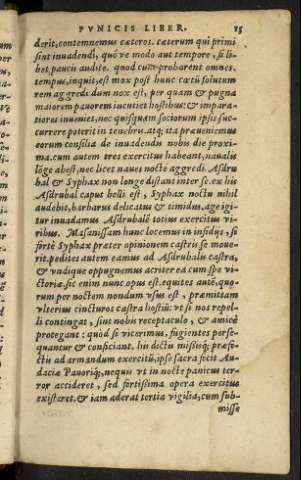 PVNICIS LIBER. 15
derit, contemnemus cæteros. cæterum qui primi
sint inuadendi, quó ve modo aut tempore, si li-
bet, paucis audite. quod cum probarent omnes.
tempus, inquit, est mox post hunc cœtū solutum
rem aggrediēdum nox est, per quam & pugna
maiorem pauorem incutiet hostibus: & imparatiores
inueniet, nec quisquam sociorum ipsis suc-
currere poterit in tenebris. atq; ita præueniemus
eorum consilia de inuadendis nobis die proxi-
ma. cum autem tres exercitus habeant, naualis
lōge abest, nec licet naues nocte aggredi. Asdru
bal & Syphax non longe distant inter se. ex his
Asdrubal caput belli est, Syphax noctu nihil
audebit, barbarus delicatus & timidus. age igi-
tur inuadamus Asdrubalē totius exercitus vi-
ribus. Masanissam hunc locemus in insidijs, si
fortè Syphax præter opinionem castris se moue-
rit. pedites autem eamus ad Asdrubalis castra,
& vndique oppugnemus acriter ea cum spe vi-
ctoriæ. sic enim nunc opus est. equites autē, quo-
rum per noctem nondum vsus est, præmittam
vlterius cincturos castra hostiū: vt si nos repel-
li contingat, sint nobis receptaculo, & amicè
protegant: quod si vicerimus, fugientes perse-
quantur & conficiant. his dictis missisq; præfe-
ctis ad armandum exercitū, ipse sacra fecit Au-
daciæ Pauoriq;, nequis vt in nocte panicus ter-
ror accideret, sed fortissima opera exercitus
existeret. & iam aderat tertia vigilia, cum sub-
misse